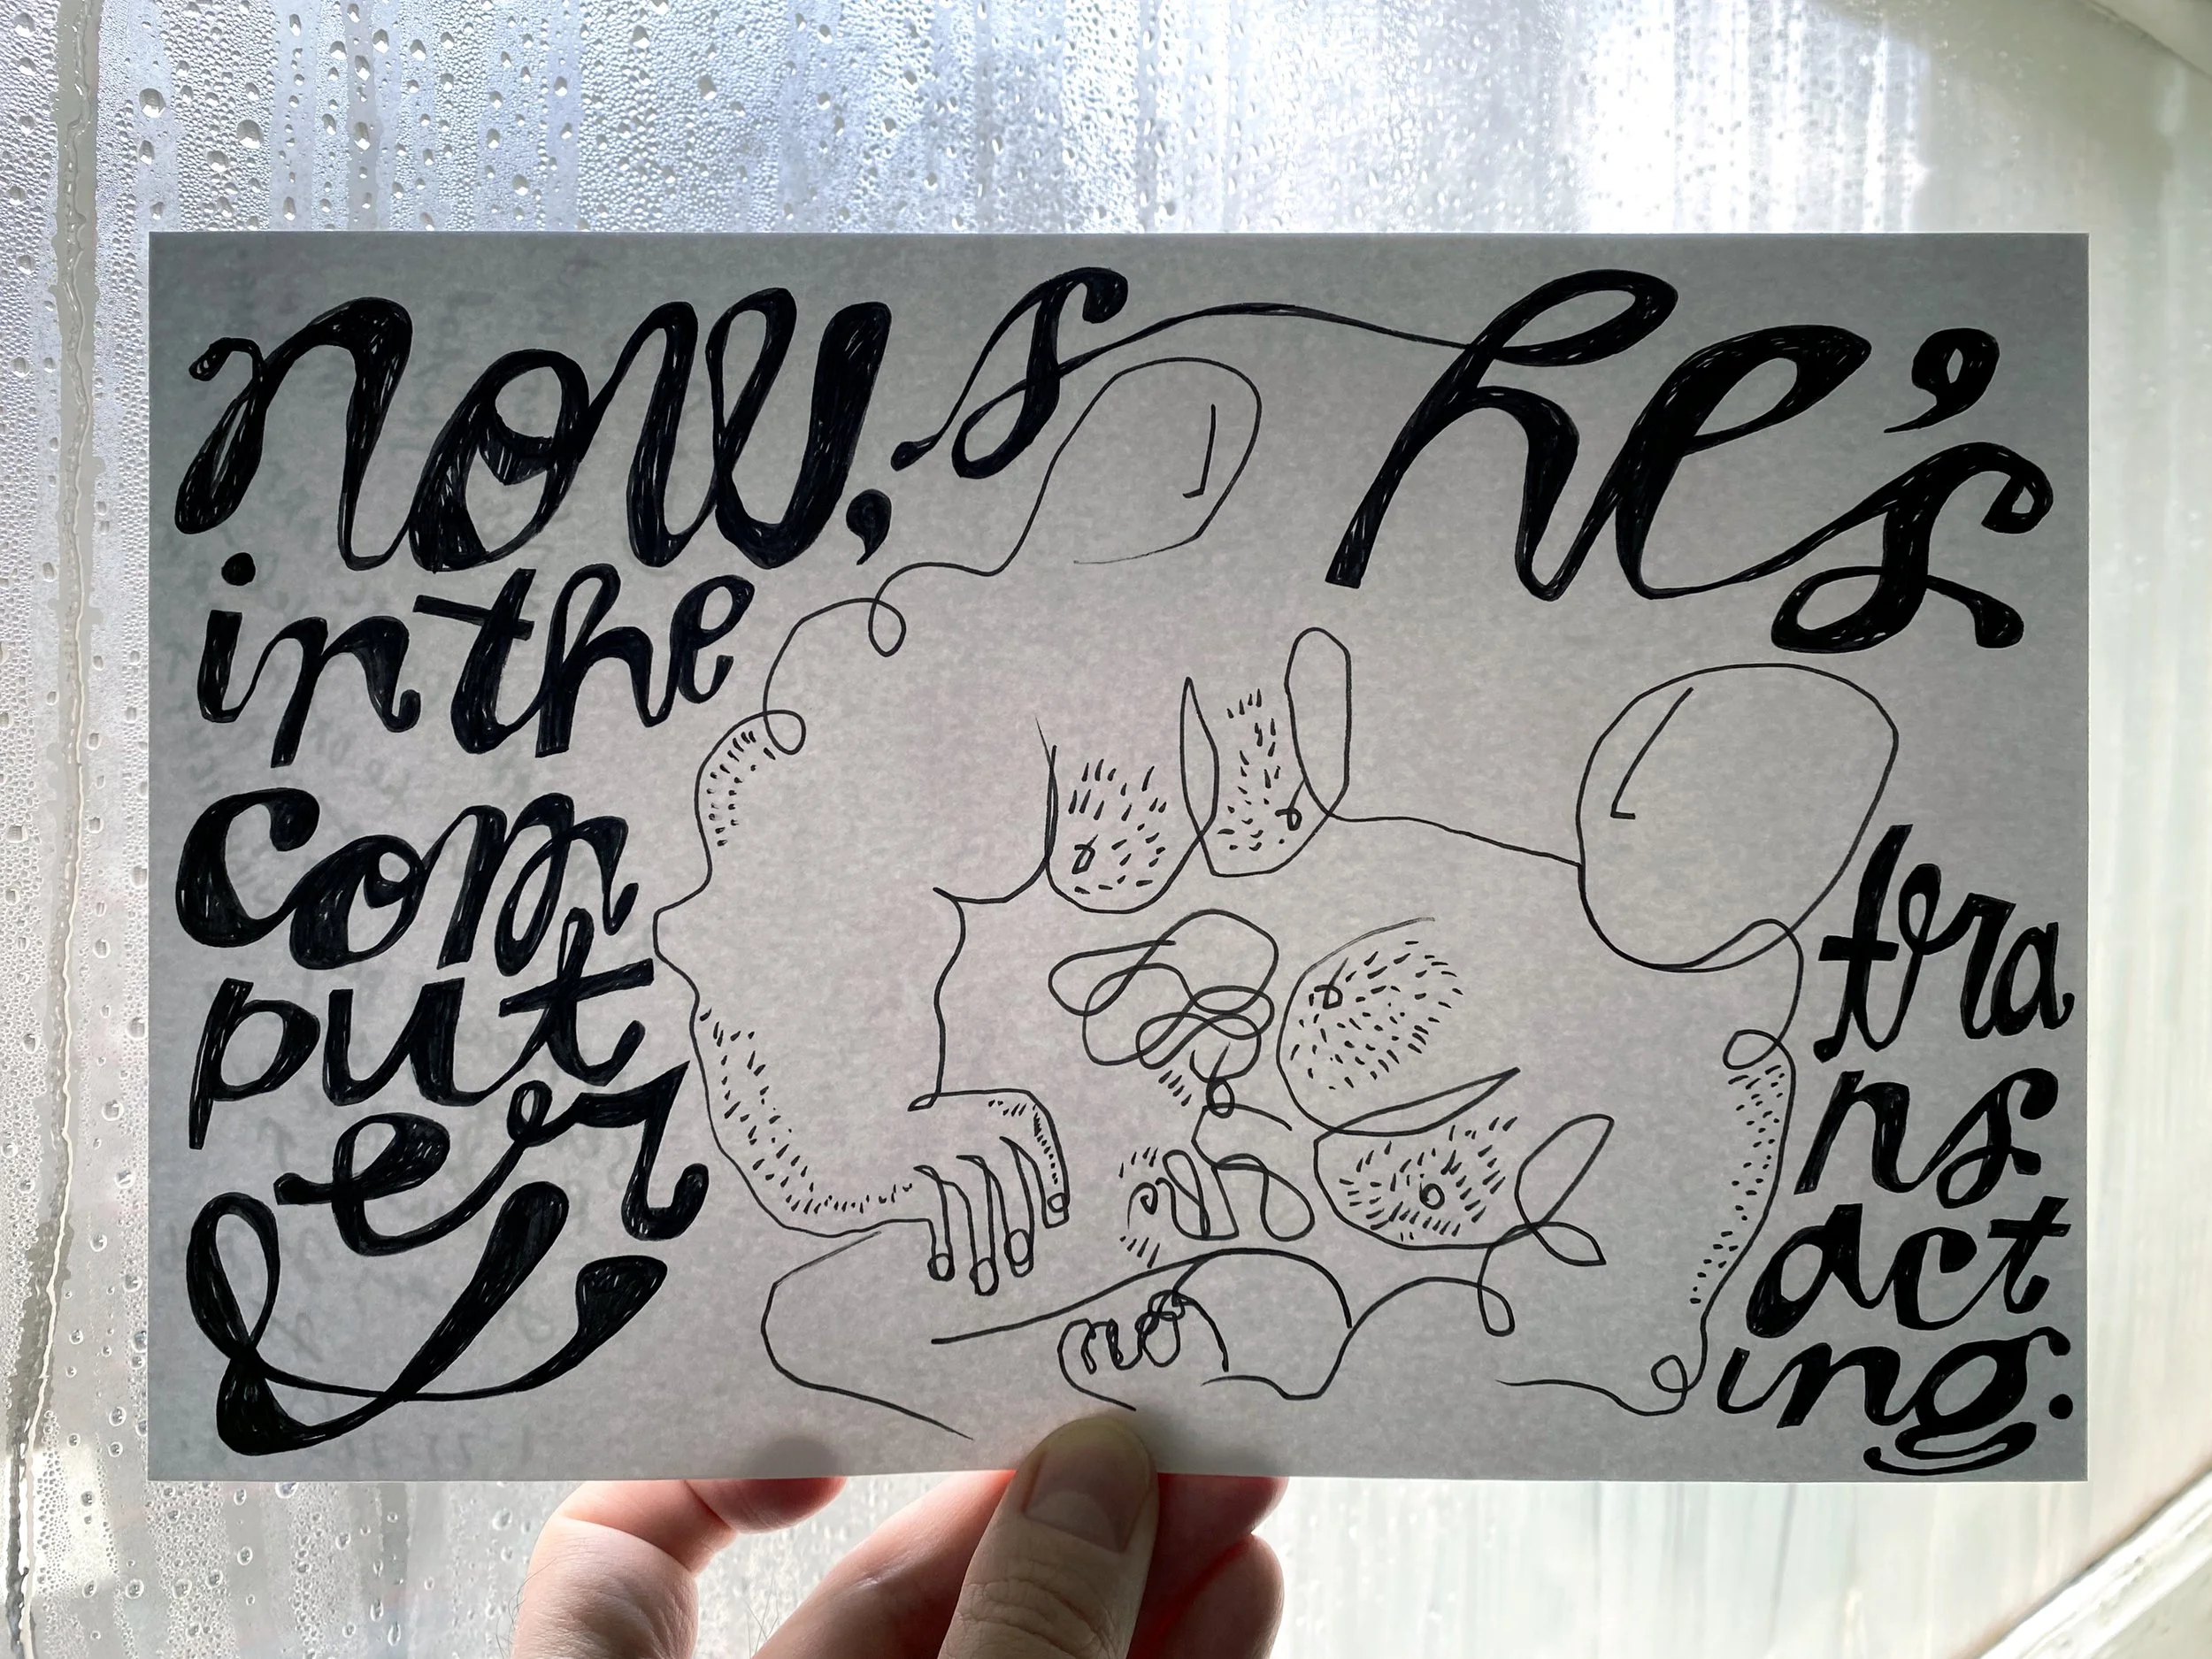 now, she's
in the
com
put
er
&
tra
ns
act
ing.